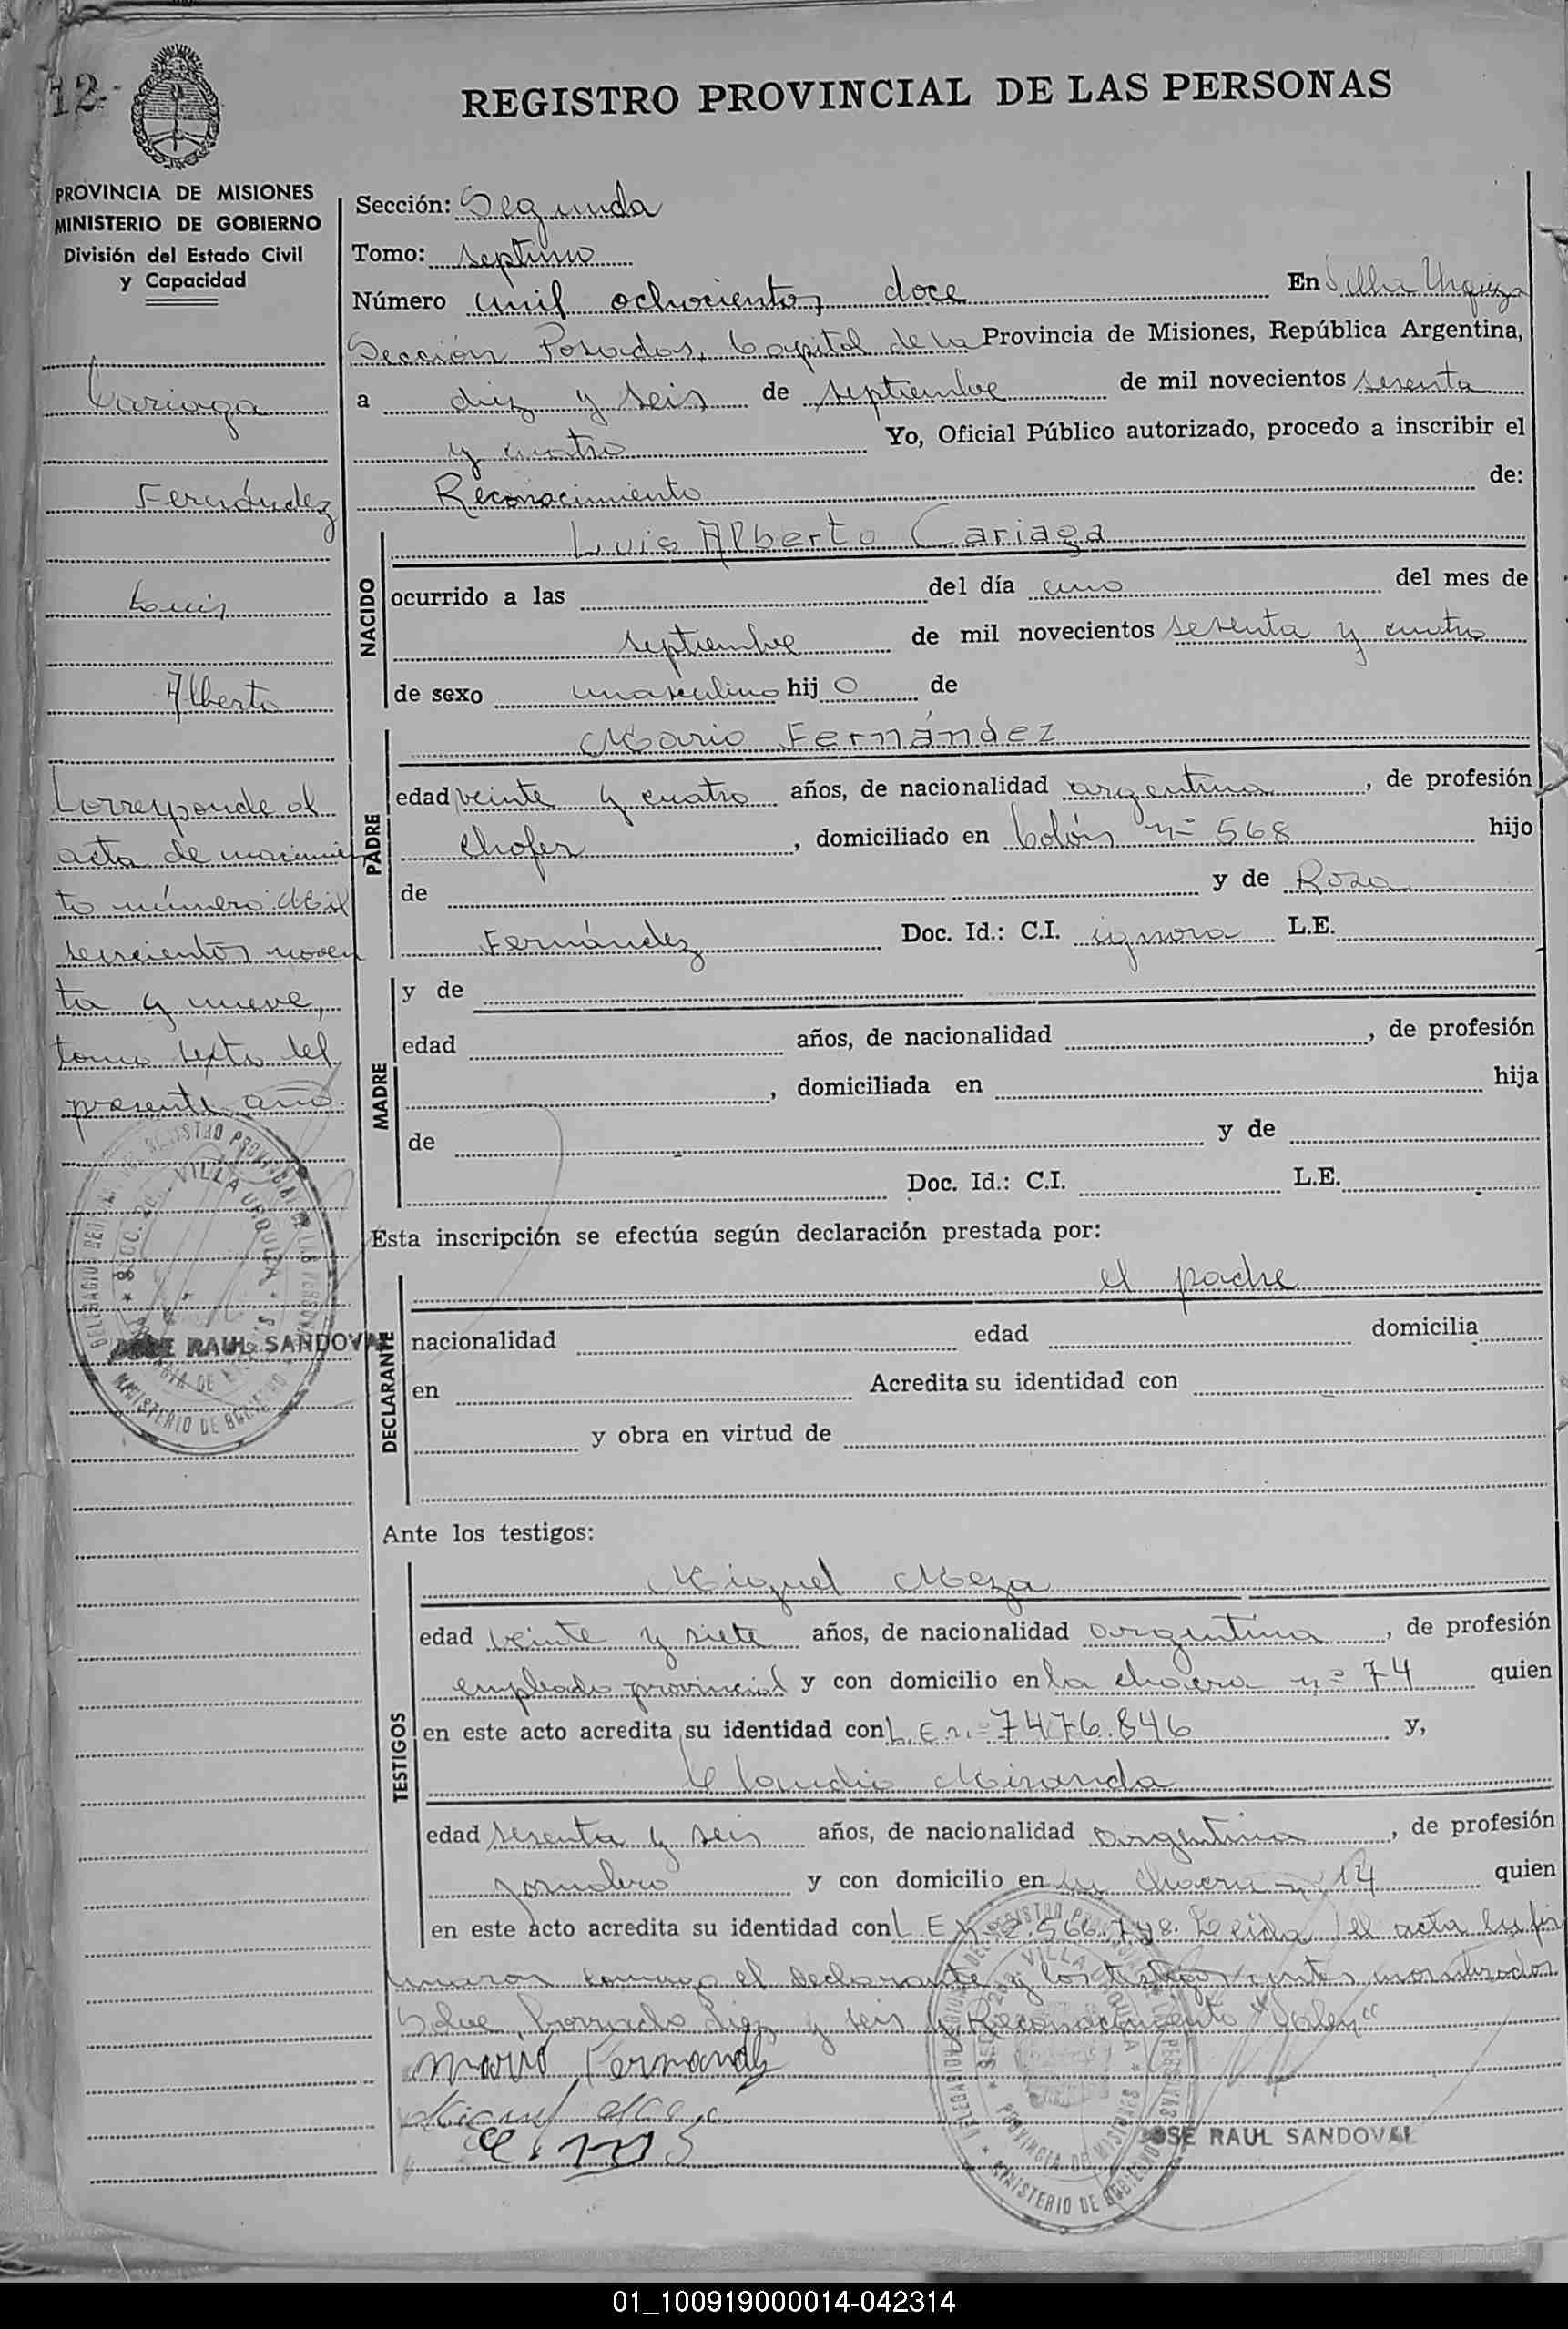 12-
REGISTRO PROVINCIAL DE LAS PERSONAS
PROVINCIA DE MISIONES
MINISTERIO DE GOBIERNO
División del Estado Civil
y Capacidad
Cariaga
Fernández
Luis
Alberto
Corresponde al
acta de nacimien
to número Mil
seiscientos noven
ta y nueve,
tomo sexto del
presente año.
VILLA URQUIZA
MINISTERIO DE GOBIERNO
JOSE RAUL SANDOVAL
Sección: Segunda
Tomo: septimo
Número mil ochocientos doce En Villa Urquiza
Sección Posadas, Capital de la Provincia de Misiones, República Argentina,
a diez y seis de septiembre de mil novecientos sesenta
y cuatro Yo, Oficial Público autorizado, procedo a inscribir el
Reconocimiento de:
NACIDO
Luis Alberto Cariaga
ocurrido a las del día uno del mes de
septiembre de mil novecientos sesenta y cuatro
de sexo masculino hij o de
PADRE
Mario Fernández
edad veinte y cuatro años, de nacionalidad argentina, de profesión
chofer, domiciliado en Colón nº 568 hijo
de y de Rosa
Fernández Doc. Id.: C.I. ignora L.E.
MADRE
y de
edad años, de nacionalidad , de profesión
, domiciliada en hija
de y de
Doc. Id.: C.I. L.E.
Esta inscripción se efectúa según declaración prestada por:
DECLARANTE
el padre
nacionalidad edad domicilia
en Acredita su identidad con
y obra en virtud de
Ante los testigos:
TESTIGOS
Miguel Meza
edad veinte y siete años, de nacionalidad argentina, de profesión
empleado provincial y con domicilio en la chacra nº 74 quien
en este acto acredita su identidad con L.E. nº 7476.846 y,
Claudio Miranda
edad sesenta y seis años, de nacionalidad argentina, de profesión
jornalero y con domicilio en la chacra nº 14 quien
en este acto acredita su identidad con L.E. Nº 2.566.798. Leida el acta la fir
maron conmigo el declarante y los testigos antes nombrados
Salve borrado diez y seis y Reconocimiento "Valen"
Mario Fernandez
Miguel Meza
VILLA URQUIZA
PROVINCIA DE MISIONES
MINISTERIO DE GOBIERNO
JOSE RAUL SANDOVAL
01_100919000014-042314